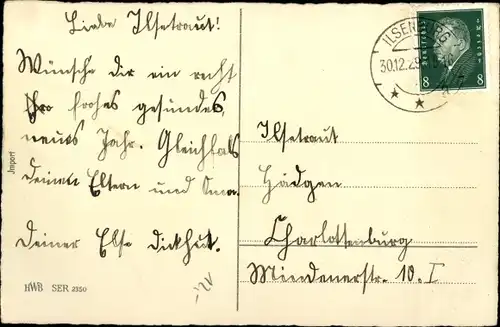 Liebe Ilsetraut!
Wünsche dir ein recht
frohes gesundes,
neues Jahr. Gleichfals
deinen Eltern und Oma.
Deiner Else Dickhut.
Import
HWB SER 2350
ILSENBURG
30.12.29
Deutsches Reich
8 8
Ilsetraut
Hädgen
Charlottenburg
Mindenerstr. 10. I